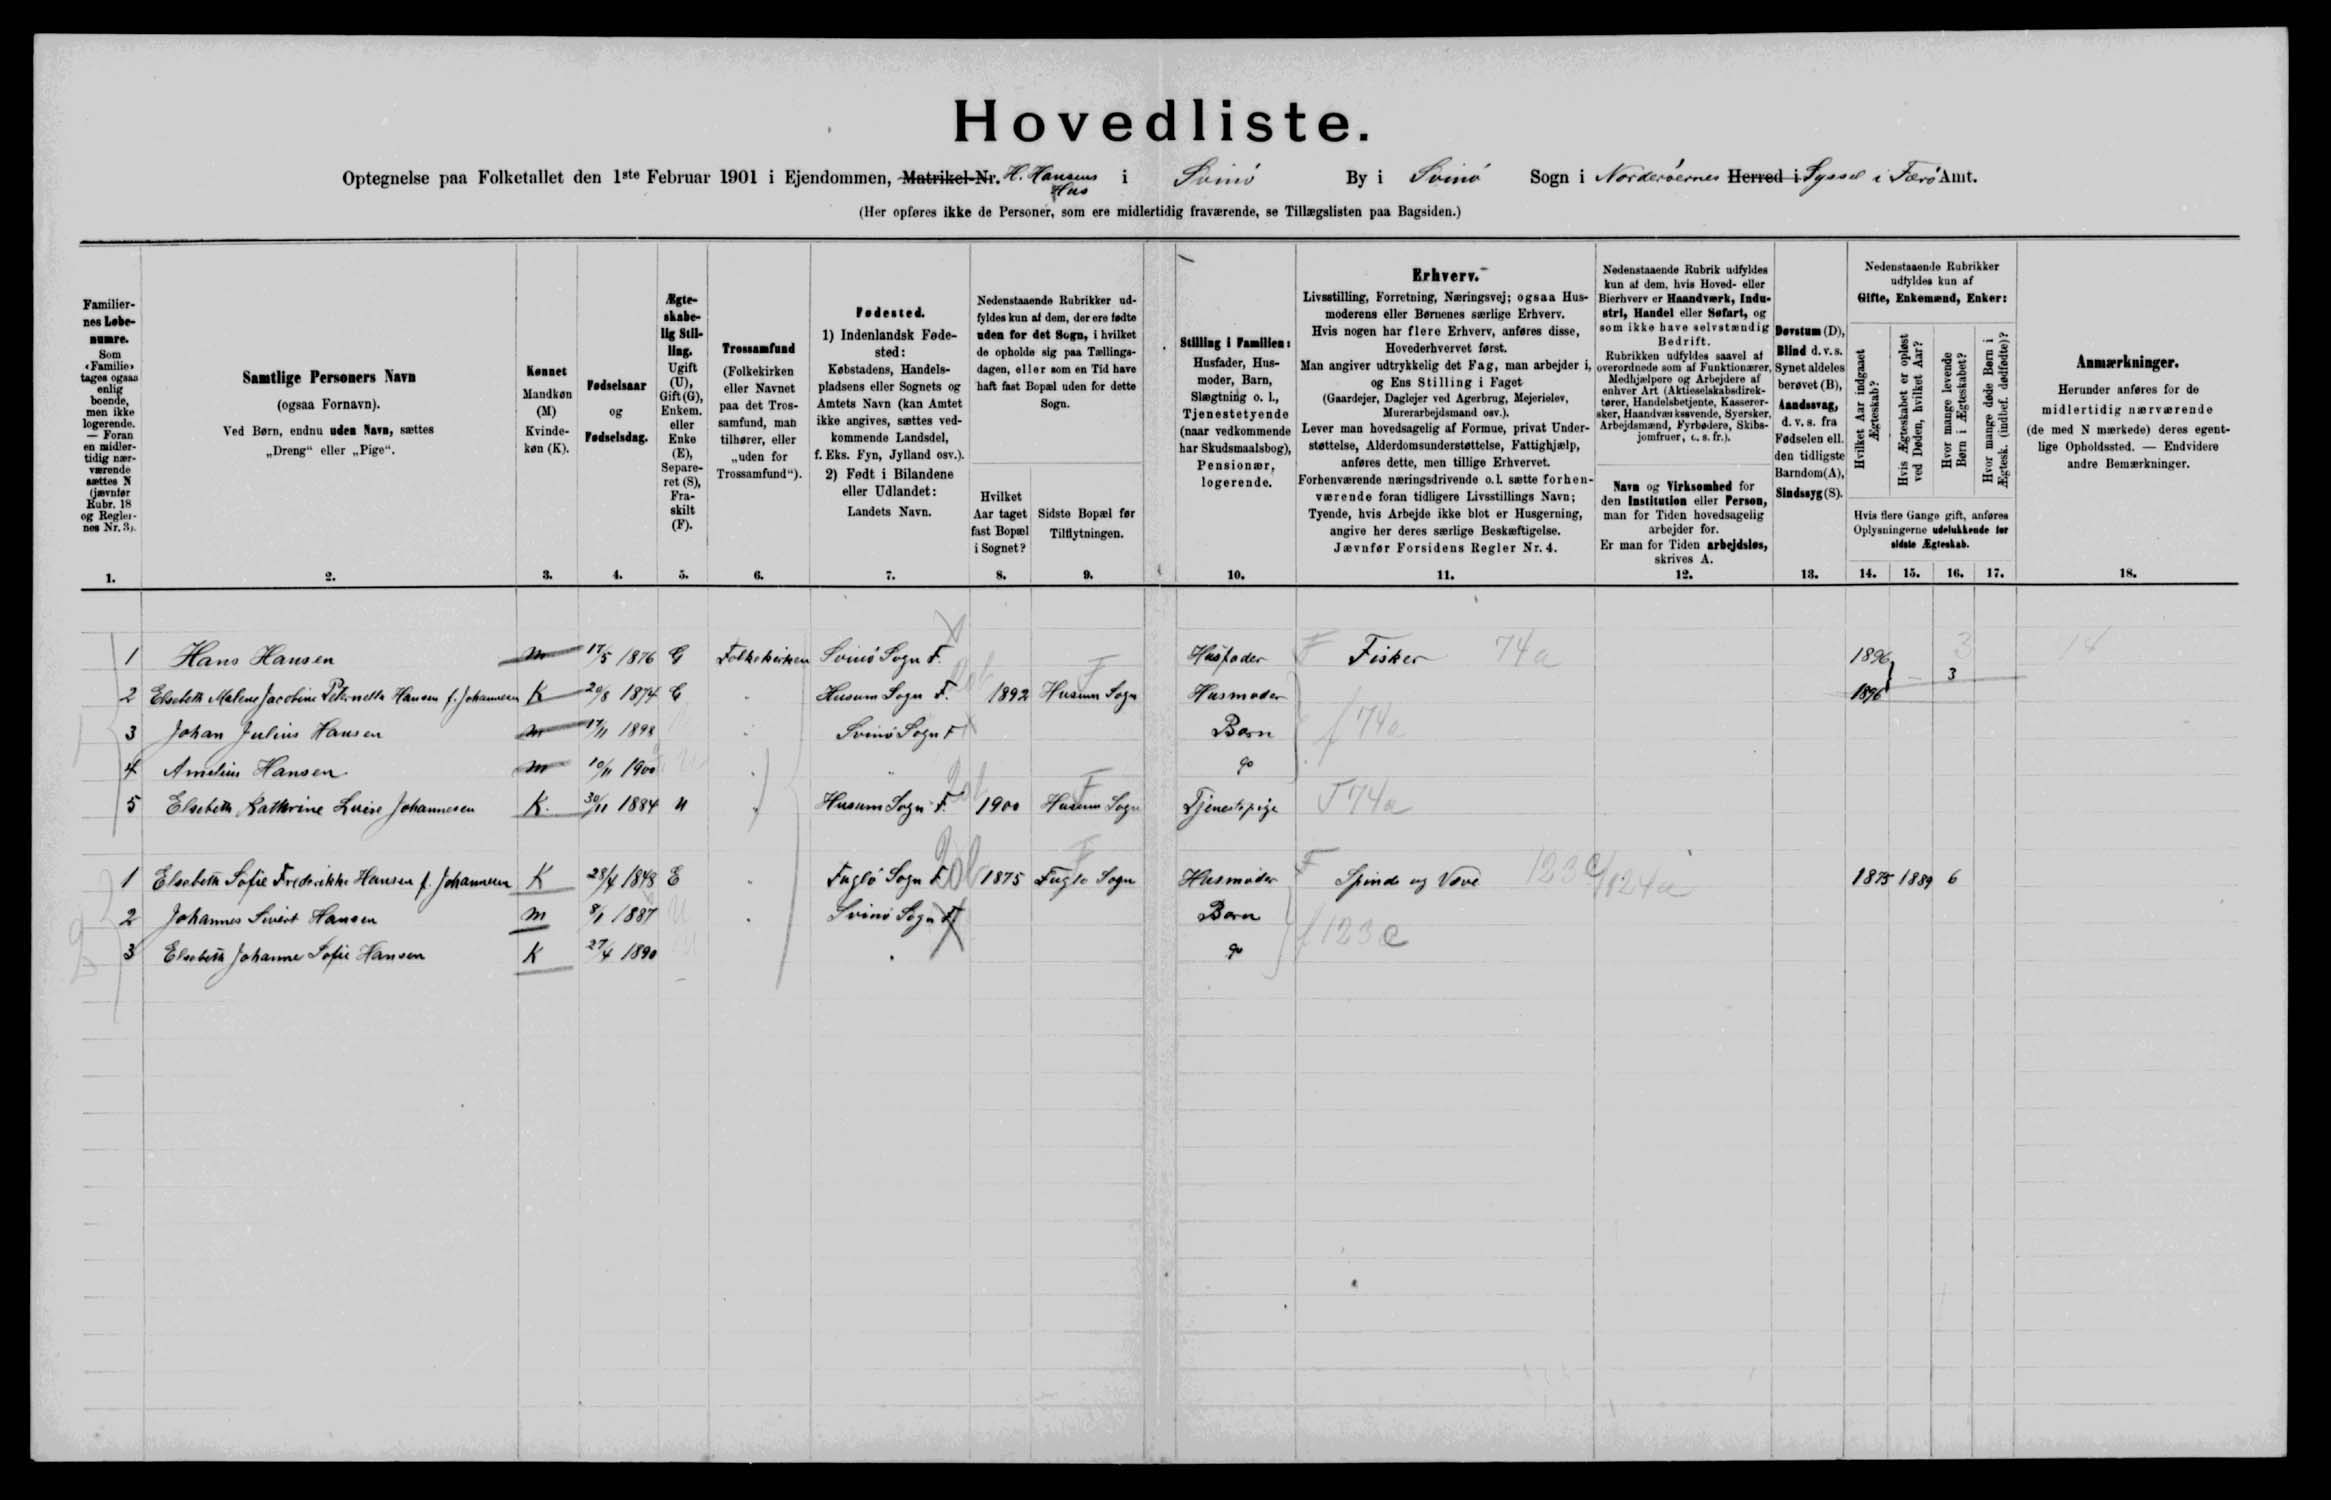 Hovedliste.
Optegnelse paa Folketallet den 1ste Februar 1901 i Ejendommen, Matrikel-Nr. H. Hansens Hus i Svinö By i Svinö Sogn i Norderöernes Herred i Syssel i Færö Amt.
(Her opføres ikke de Personer, som ere midlertidig fraværende, se Tillægslisten paa Bagsiden.)
Familiernes Løbenumre.
Som «Familie» tages ogsaa enlig boende, men ikke logerende. — Foran en midlertidig nærværende sættes N (jævnfør Rubr. 18 og Reglernes Nr. 3).
1.
Samtlige Personers Navn
(ogsaa Fornavn).
Ved Børn, endnu uden Navn, sættes
„Dreng“ eller „Pige“.
2.
Kønnet
Mandkøn (M)
Kvindekøn (K).
3.
Fødselsaar
og
Fødselsdag.
4.
Ægteskabelig Stilling.
Ugift (U), Gift (G), Enkem. eller Enke (E), Separeret (S), Fraskilt (F).
5.
Trossamfund
(Folkekirken eller Navnet paa det Trossamfund, man tilhører, eller „uden for Trossamfund“).
6.
Fødested.
1) Indenlandsk Fødested:
Købstadens, Handelspladsens eller Sognets og Amtets Navn (kan Amtet ikke angives, sættes vedkommende Landsdel, f. Eks. Fyn, Jylland osv.).
2) Født i Bilandene eller Udlandet:
Landets Navn.
7.
Nedenstaaende Rubrikker udfyldes kun af dem, der ere fødte uden for det Sogn, i hvilket de opholde sig paa Tællingsdagen, eller som en Tid have haft fast Bopæl uden for dette Sogn.
Hvilket Aar taget fast Bopæl i Sognet?
8.
Sidste Bopæl før Tilflytningen.
9.
Stilling i Familien:
Husfader, Husmoder, Barn, Slægtning o. l., Tjenestetyende (naar vedkommende har Skudsmaalsbog), Pensionær, logerende.
10.
Erhverv.
Livsstilling, Forretning, Næringsvej; ogsaa Husmoderens eller Børnenes særlige Erhverv.
Hvis nogen har flere Erhverv, anføres disse, Hovederhvervet først.
Man angiver udtrykkelig det Fag, man arbejder i, og Ens Stilling i Faget
(Gaardejer, Daglejer ved Agerbrug, Mejerielev, Murerarbejdsmand osv.).
Lever man hovedsagelig af Formue, privat Understøttelse, Alderdomsunderstøttelse, Fattighjælp, anføres dette, men tillige Erhvervet.
Forhenværende næringsdrivende o.l. sætte forhenværende foran tidligere Livsstillings Navn;
Tyende, hvis Arbejde ikke blot er Husgerning, angive her deres særlige Beskæftigelse.
Jævnfør Forsidens Regler Nr. 4.
11.
Nedenstaaende Rubrik udfyldes kun af dem, hvis Hoved- eller Bierhverv er Haandværk, Industri, Handel eller Søfart, og som ikke have selvstændig Bedrift.
Rubrikken udfyldes saavel af overordnede som af Funktionærer, Medhjælpere og Arbejdere af enhver Art (Aktieselskabsdirektører, Handelsbetjente, Kasserersker, Haandværkssvende, Syersker, Arbejdsmænd, Fyrbødere, Skibsjomfruer, o. s. fr.).
Navn og Virksomhed for den Institution eller Person, man for Tiden hovedsagelig arbejder for.
Er man for Tiden arbejdsløs, skrives A.
12.
Døvstum (D), Blind d. v. s. Synet aldeles berøvet (B), Aandssvag, d. v. s. fra Fødselen ell. den tidligste Barndom (A), Sindssyg (S).
13.
Nedenstaaende Rubrikker udfyldes kun af
Gifte, Enkemænd, Enker:
Hvilket Aar indgaaet Ægteskab?
Hvis Ægteskabet er opløst ved Døden, hvilket Aar?
Hvor mange levende Børn i Ægteskabet?
Hvor mange døde Børn i Ægtesk. (indbef. dødfødte)?
Hvis flere Gange gift, anføres Oplysningerne udelukkende for sidste Ægteskab.
14. 15. 16. 17.
Anmærkninger.
Herunder anføres for de midlertidig nærværende (de med N mærkede) deres egentlige Opholdssted. — Endvidere andre Bemærkninger.
18.
1 Hans Hansen m 17/5 1876 G Folkekirken Svinö Sogn F. Husfader F Fisker 74a 1896 3 14
2 Elsebeth Malene Jacobine Petronella Hansen f. Johannesen K 20/8 1874 G Husum Sogn F. 1892 Husum Sogn Husmoder 1896 3
3 Johan Julius Hansen m 17/11 1898 Svinö Sogn F Barn f 74a
4 Amelius Hansen m 10/11 1900 U " do
5 Elsebeth Kathrine Luise Johannesen K. 30/11 1884 U Husum Sogn F. 1900 Husum Sogn Tjenestepige T 74a
1 Elsebeth Sofie Frederikke Hansen f. Johannesen K 28/4 1848 E Fuglö Sogn F. 1875 Fuglö Sogn Husmoder F Spinde og Væve 123c/124a 1875 1889 6
2 Johannes Sivert Hansen m 8/1 1887 U Svinö Sogn F. Barn f 123c
3 Elsebeth Johanne Sofie Hansen K 27/4 1890 U do